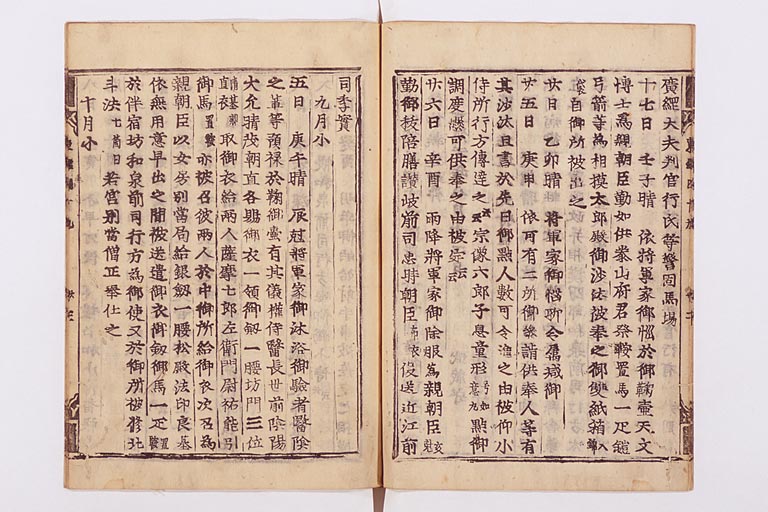 廣經大夫判官行氏等警固馬場
十七日 壬子晴 依將軍家御惱於御鞠壺天文
博士爲親朝臣勤如供泰山府君祭鞍置馬一疋鎧
弓箭等爲相摸太郎殿御沙汰被奉之御雙紙箱
自御所被出之
廿日 乙卯晴 將軍家御惱所令屬減御
廿五日 庚申晴 依可有二所御參詣供奉人等有
其沙汰且書於先日御點人數可令進之由被仰小
侍所行方傳達之云云 宗像六郎子息童形 點御
調度懸可供奉之由被定云云
廿六日 辛酉 雨降將軍家御除服爲親朝臣
勤御祓陪膳讃岐前司忠時朝臣布衣役送近江前
司季實
九月小
五日 庚午晴 辰尅將軍家御沐浴御驗者醫陰
之輩等預祿於鞠御壺有其儀權侍醫長世前陰陽
大允晴茂朝直各賜御衣一領御劔一腰坊門三位
清基直衣取御衣給兩人薩摩七郎左衞門尉祐能引
御馬置鞍亦被召彼兩人於中御所給御衣次召爲
親朝臣以女房別當局給銀劔一腰松殿法印良基
依無用意早出之間被送遣御衣御劔御馬一疋置鞍
於伴宿坊和泉前司行方爲御使又於御所被修北
斗法七箇日若宮別當僧正奉仕之
十月小